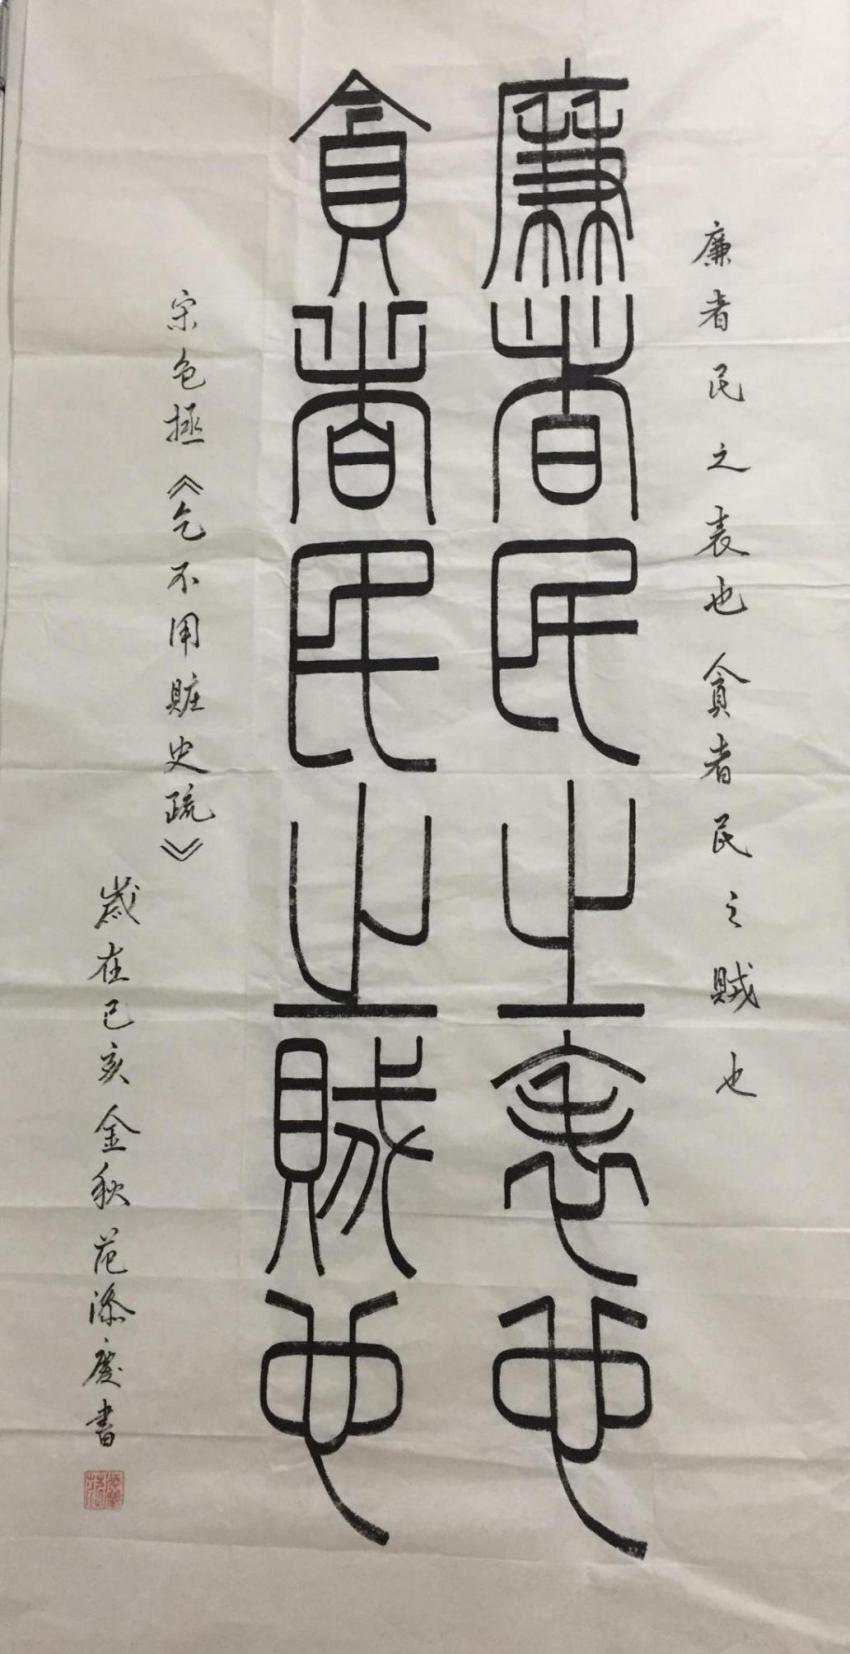 廉者民之表也貪者民之賊也
廉者民之表也
貪者民之賊也
宋包拯《乞不用賍吏疏》
歲在己亥金秋范涤慶書